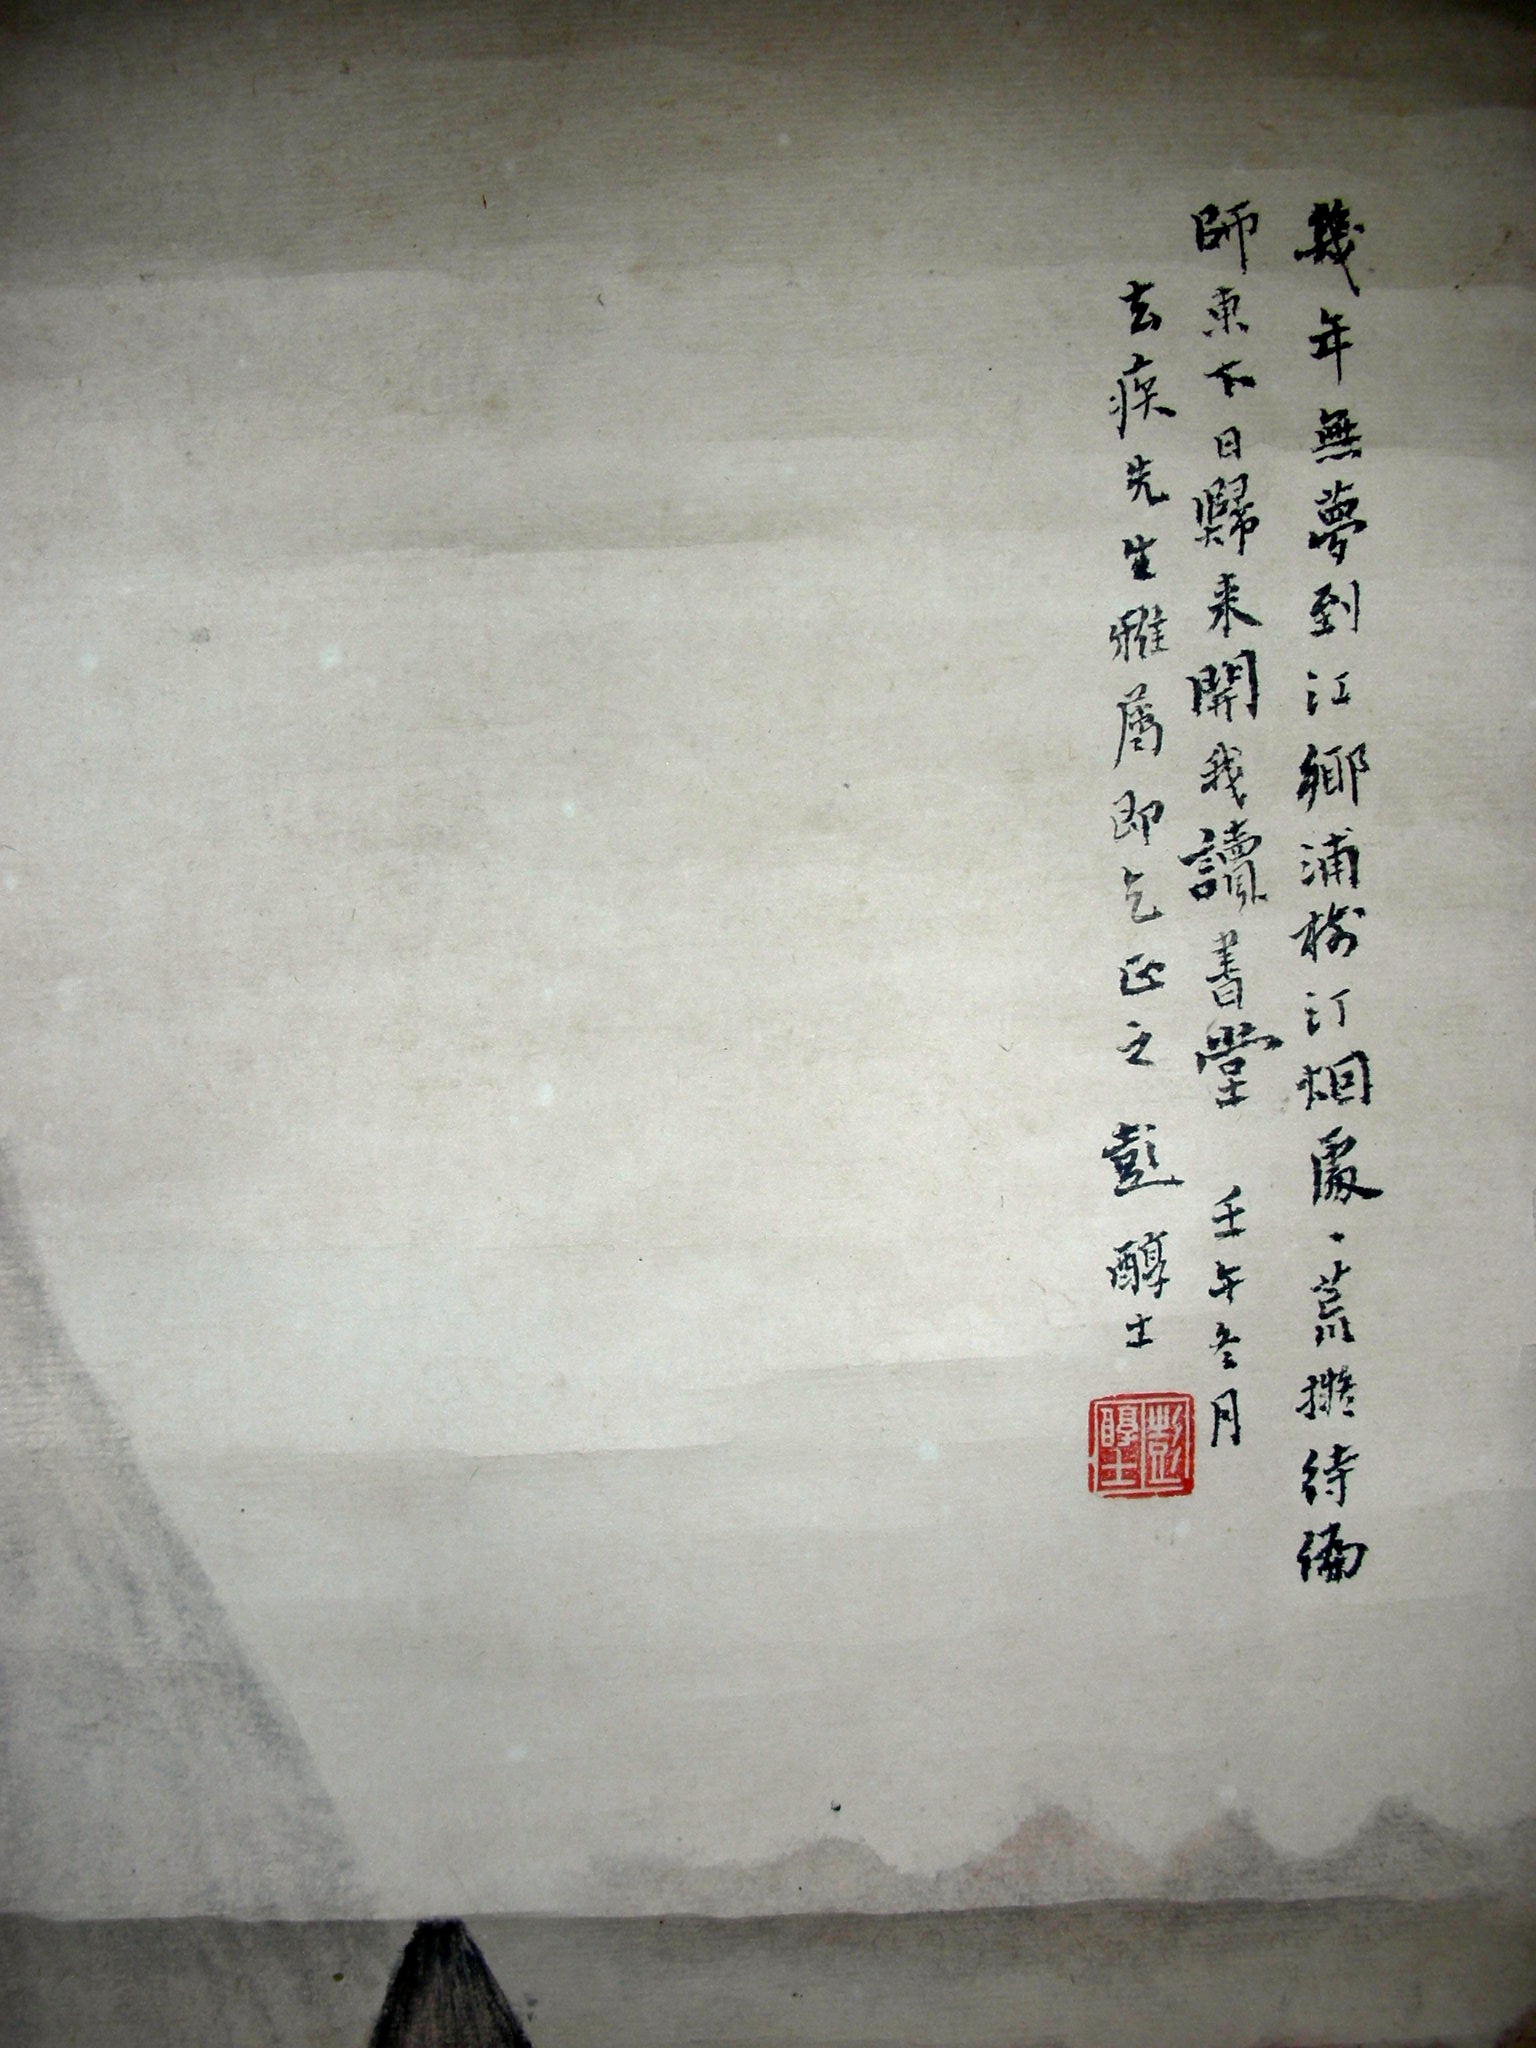 幾年無夢到江鄉浦樹汀烟處、荒擬待偏
師東下日歸來開我讀書堂 壬午冬月
去疾先生雅屬即乞正之 彭醇士
彭醇士